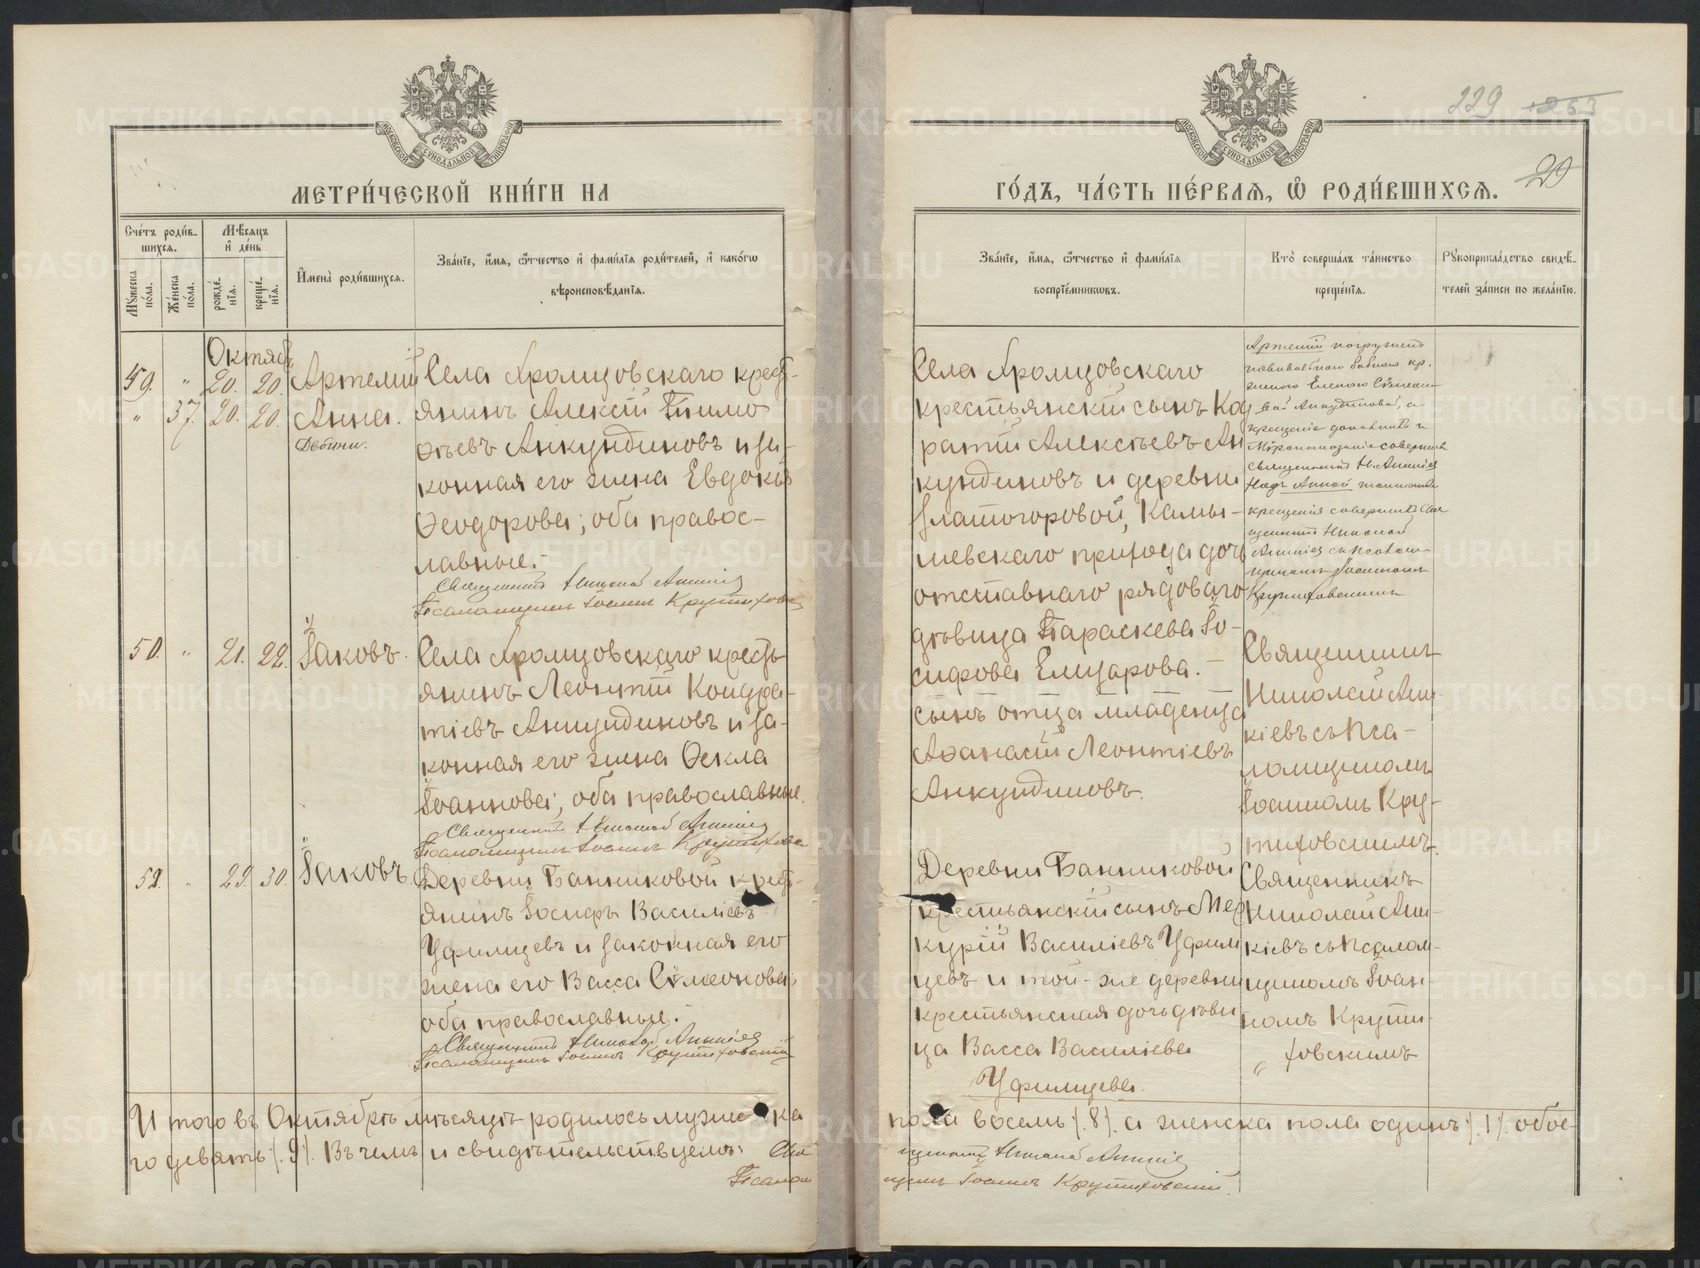 229
20
МОСКОВСКОЙ СѴНОДАЛЬНОЙ ТИПОГРАФІИ
МОСКОВСКОЙ СѴНОДАЛЬНОЙ ТИПОГРАФІИ
МЕТРИ́ЧЕСКОЙ КНИ́ГИ НА
ГО́ДЪ, ЧА́СТЬ ПЕ́РВАЯ, Ѽ РОДИ́ВШИХСЯ.
Сче́тъ роди́в-
шихся.
Мѣсяцъ
и҆ де́нь
Мꙋжеска
по́ла.
Же́нска
по́ла.
рожде́-
нїѧ.
креще́-
нїѧ.
И҆мена̀ роди́вшихся.
Зва́нїе, и҆́мя, ѻ҆́тчество и҆ фами́лїя роди́телей, и҆ како́гѡ
вѣроисповѣ́данїя.
Зва́нїе, и҆́мя, ѻ҆́тчество и҆ фами́лїя
воспрїе́мниковъ.
Кто̀ соверша́лъ та́инство
креще́нїя.
Рꙋкоприкла́дство свидѣ́-
телей за́писи по жела́нїю.
Октябрь
59. " 20. 20. Артемій
" 37. 20. 20. Анна.
Двойни.
Села Храмцовскаго кресть-
янинъ Алексій Тимо
ѳеевъ Анкундиновъ и за-
конная его жена Евдокія
Ѳеодорова; оба правос-
лавные.
Священникъ Николай Аникіев
Псаломщикъ Іоаннъ Крутиховскій
Села Храмцовскаго
крестьянскій сынъ Код
ратій Алексѣевъ Ан
кундиновъ и деревни
Златогоровой, Камы-
шевскаго прихода дочь
отставнаго рядоваго
дѣвица Параскева Іо-
сифова Елизарова.
Артемій погруженъ
повивальною бабкою кр.
женою Еленою Симеон-
вой Анкудиновой, а
крещеніе дополнилъ и
Мѵропомазаніе совершилъ
священникъ Н. Аникіевъ
Надъ Анной таинство
крещенія совершилъ Свя
щенникъ Николай
Аникіев съ псалом-
щикомъ Іоанномъ
Крутиховскимъ
50. " 21. 22. Іаковъ.
Села Храмцовскаго кресть
янинъ Леонтій Кондра-
тіевъ Анкундиновъ и за-
конная его жена Ѳекла
Іоаннова; оба православные.
Священникъ Николай Аникіев
Псаломщикъ Іоаннъ Крутиховскій
сынъ отца младенца
Аѳанасій Леонтіевъ
Анкундиновъ.
Священникъ
Николай Ани
кіевъ съ Пса-
ломщикомъ
Іоанномъ Кру-
тиховскимъ.
52. " 29. 30. Іаковъ.
Деревни Банниковой кресть-
янинъ Іосифъ Василіевъ
Уфимцевъ и законная его
жена его Васса Симеонова;
оба православные.
Священникъ Николай Аникіев
Псаломщикъ Іоаннъ Крутиховскій
Деревни Банниковой
крестьянскій сынъ Мер
курій Василіевъ Уфим
цевъ и той-же деревни
крестьянская дочь дѣви
ца Васса Василіева
Уфимцева.
Священникъ
Николай Ани-
кіевъ съ псалом-
щикомъ Іоан-
номъ Крути-
" ховскимъ
Итого въ Октябрѣ мѣсяцѣ родилось мужеска пола восемь /.8/. а женска пола одинъ /.1/. обое-
го девять /.9/. Въ чемъ и свидѣтельствуемъ: Священникъ Николай Аникіев
Псаломщикъ Іоаннъ Крутиховскій.